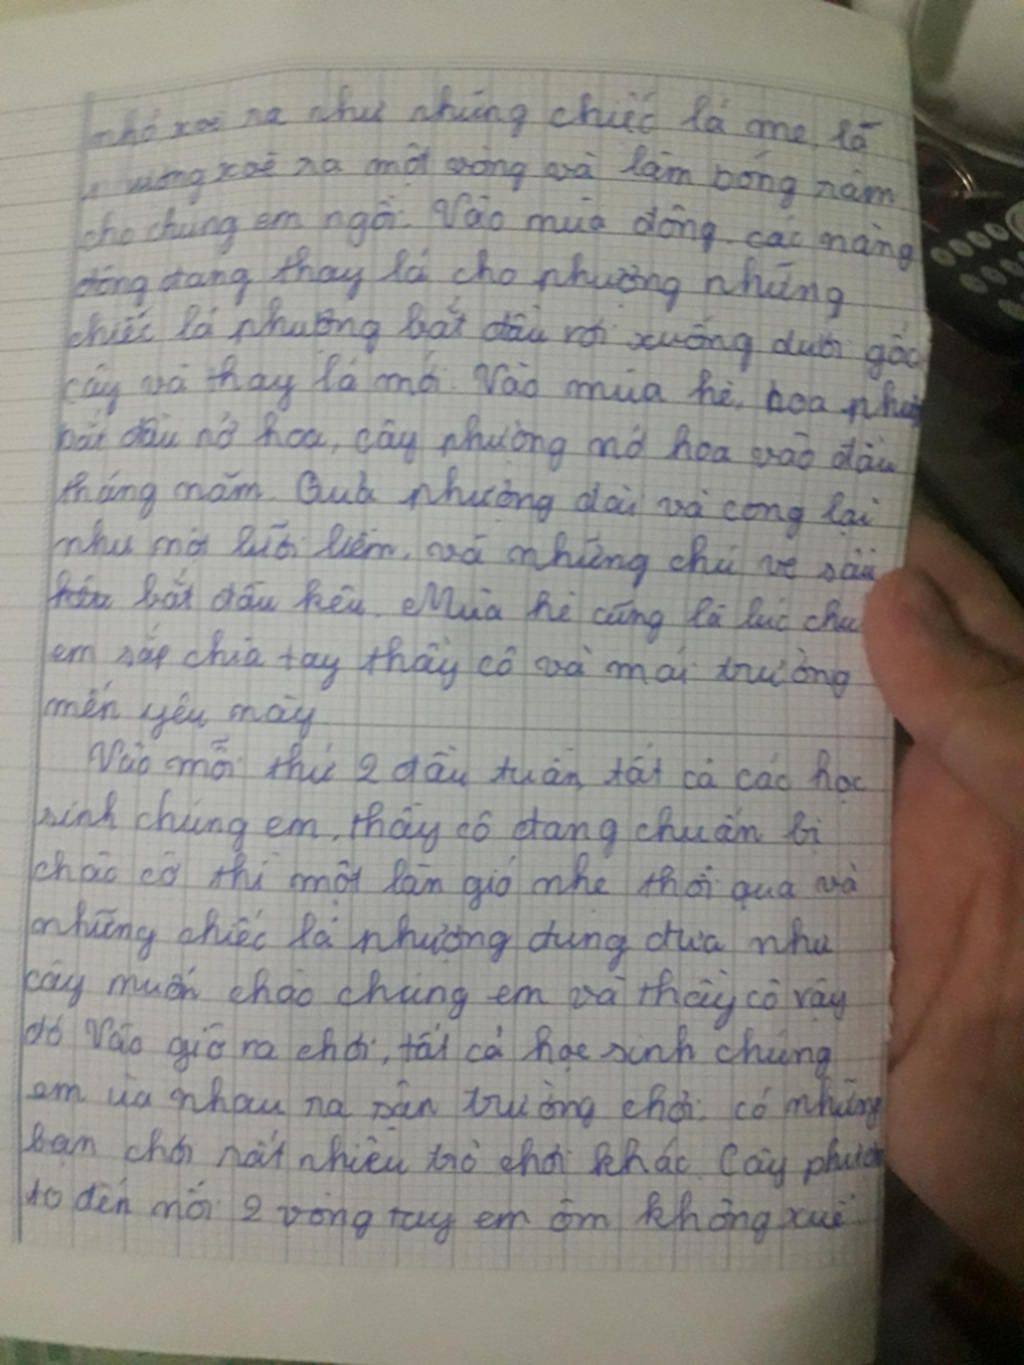 nhỏ xoè ra như những chiếc lá me, lá
phượng xoè ra một vòng và làm bóng râm
cho chúng em ngồi. Vào mùa đông các nàng
đông đang thay lá cho phượng những
chiếc lá phượng bắt đầu rơi xuống dưới gốc
cây và thay lá mới. Vào mùa hè, hoa
bắt đầu nở hoa, cây phượng nở hoa vào đầu
tháng năm. Quả phượng dài và cong lại
như một lưỡi liềm, và những chú ve sầu
bắt đầu kêu. Mùa hè cũng là lúc
em sắp chia tay thầy cô và mái trường
mến yêu này
Vào mỗi thứ 2 đầu tuần, tất cả các học
sinh chúng em, thầy cô đang chuẩn bị
chào cờ thì một làn gió nhẹ thổi qua và
những chiếc lá phượng đung đưa như
cây muốn chào chúng em và thầy cô vậy
đó Vào giờ ra chơi, tất cả học sinh chúng
em ùa nhau ra sân trường chơi. có những
bạn chơi rất nhiều trò chơi khác. Cây
to đến nỗi 2 vòng tay em ôm không xuể